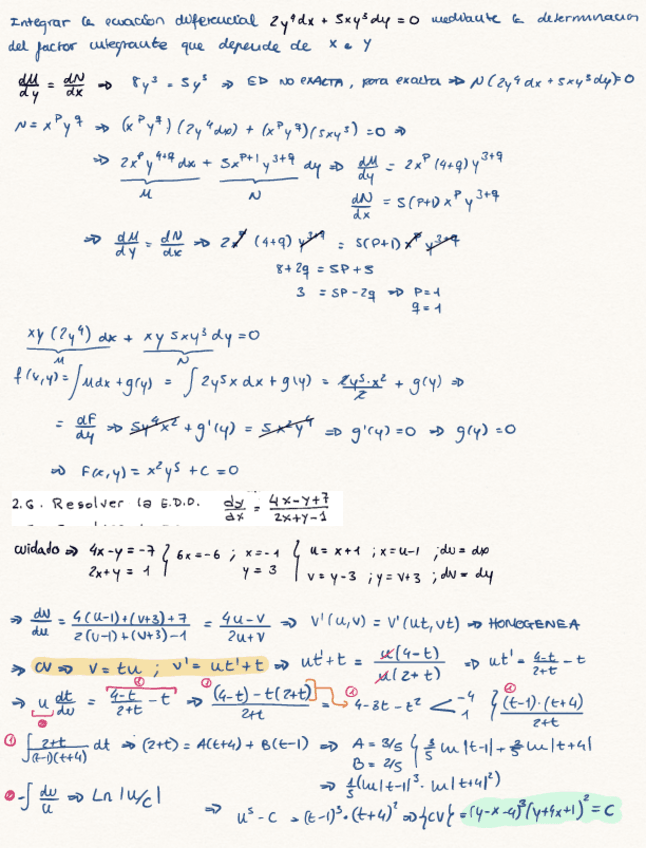 Integrar la ecuación diferencial 2y⁴dx + 5xy³dy = 0 mediante la determinación
del factor integrante que depende de x e y
dM/dy = dN/dx ⇒ 8y³ = 5y³ ⇒ ED NO EXACTA, para exacta ⇒ N(2y⁴dx + 5xy³dy)=0
N = x^p y^q ⇒ (x^p y^q)(2y⁴dx) + (x^p y^q)(5xy³) = 0 ⇒
⇒ 2x^p y^(4+q) dx + 5x^(p+1) y^(3+q) dy ⇒ dM/dy = 2x^p (4+q) y^(3+q)
M N dN/dx = 5(p+1) x^p y^(3+q)
⇒ dM/dy = dN/dx ⇒ 2x^p (4+q) y^(3+q) = 5(p+1) x^p y^(3+q)
8+2q = 5p+5
3 = 5p-2q ⇒ p=1
q=1
xy (2y⁴) dx + xy 5xy³ dy = 0
M N
f(x,y) = ∫Mdx + g(y) = ∫2y⁵x dx + g(y) = 2y⁵·x²/2 + g(y) ⇒
= dF/dy ⇒ 5y⁴x² + g'(y) = 5x²y⁴ ⇒ g'(y) = 0 ⇒ g(y) = 0
⇒ F(x,y) = x²y⁵ + C = 0
2.6. Resolver la E.D.O. dy/dx = 4x-y+7/2x+y-1
cuidado ⇒ 4x-y = -7 } 6x = -6 ; x = -1 { u = x+1 ; x = u-1 ; du = dx
2x+y = 1 y = 3 v = y-3 ; y = v+3 ; dv = dy
⇒ dv/du = 4(u-1)+(v+3)+7/2(u-1)+(v+3)-1 = 4u-v/2u+v ⇒ v'(u,v) = v'(ut,vt) ⇒ HOMOGENEA
⇒ CV ⇒ v = tu ; v' = ut'+t ⇒ ut'+t = u(4-t)/u(2+t) ⇒ ut' = 4-t/2+t - t
⇒ u dt/du = 4-t/2+t - t ⇒ (4-t)-t(2+t)/2+t = 4-3t-t² < -4 1 { (t-1)·(t+4)/2+t
① ∫ 2+t/(t-1)(t+4) dt ⇒ (2+t) = A(t+4) + B(t-1) ⇒ A = 3/5 { 3/5 ln|t-1| + 2/5 ln|t+4|
B = 2/5
⇒ 1/5 (ln|t-1|³ · ln|t+4|²)
② -∫ du/u ⇒ Ln |u/c|
⇒ u⁵-C = (t-1)³·(t+4)² ⇒ {CV} = (y-x-4)³(y+4x+1)² = C